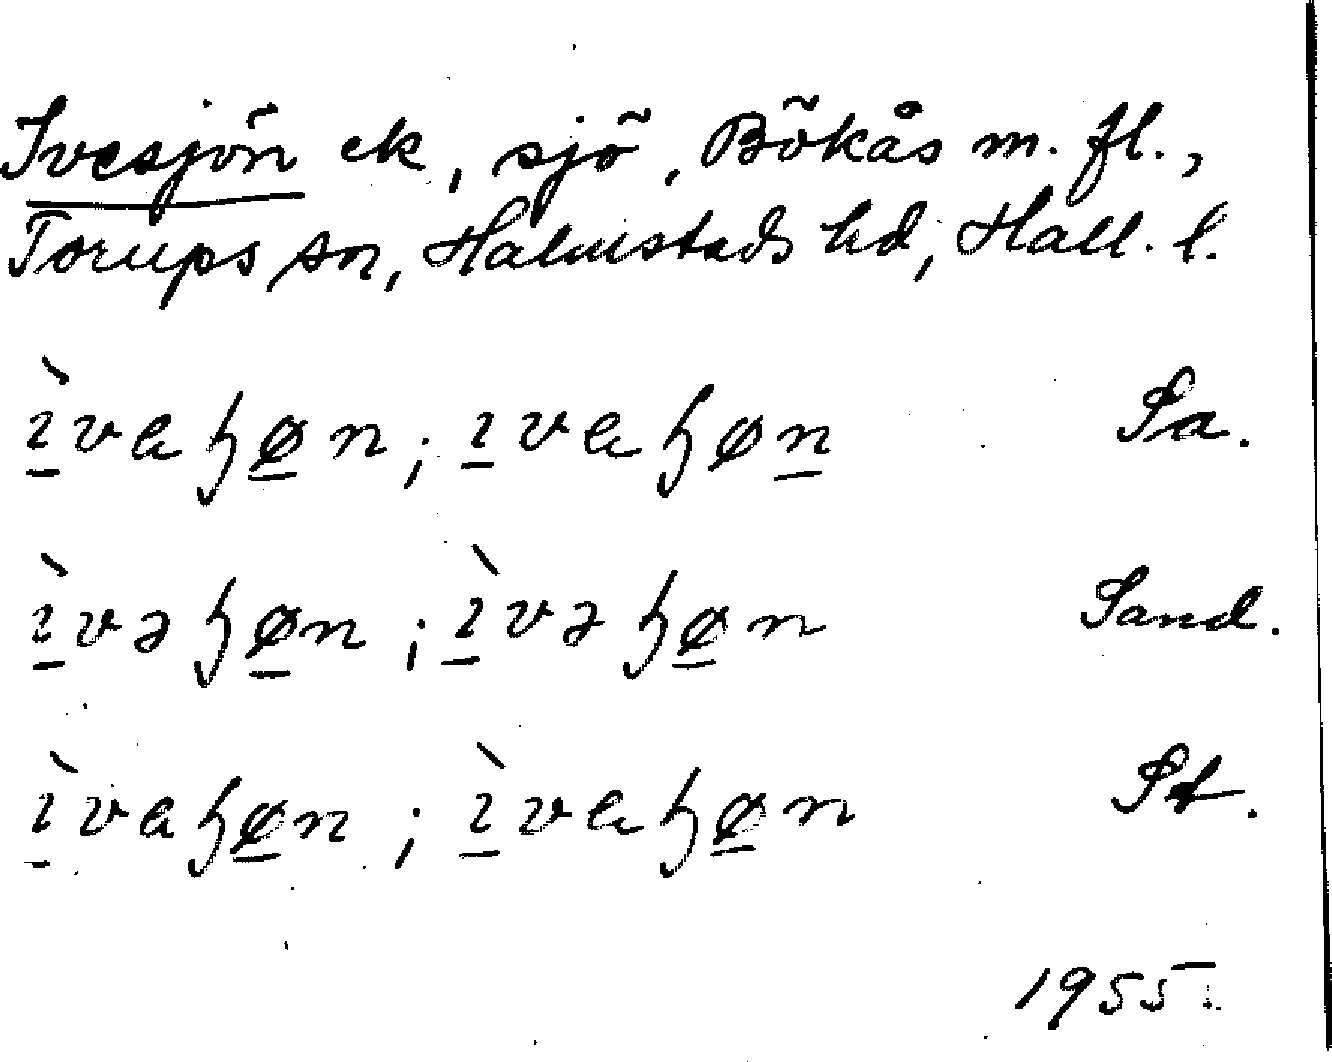 Ivesjön ek, sjö, Bökås m. fl.,
Torups sn, Halmstads hd, Hall. l.
ìvaɧøn; ıvaɧøn Sa.
ìvəɧøn; ìvəɧøn Sand.
ìvaɧøn; ìvaɧøn St.
1955.